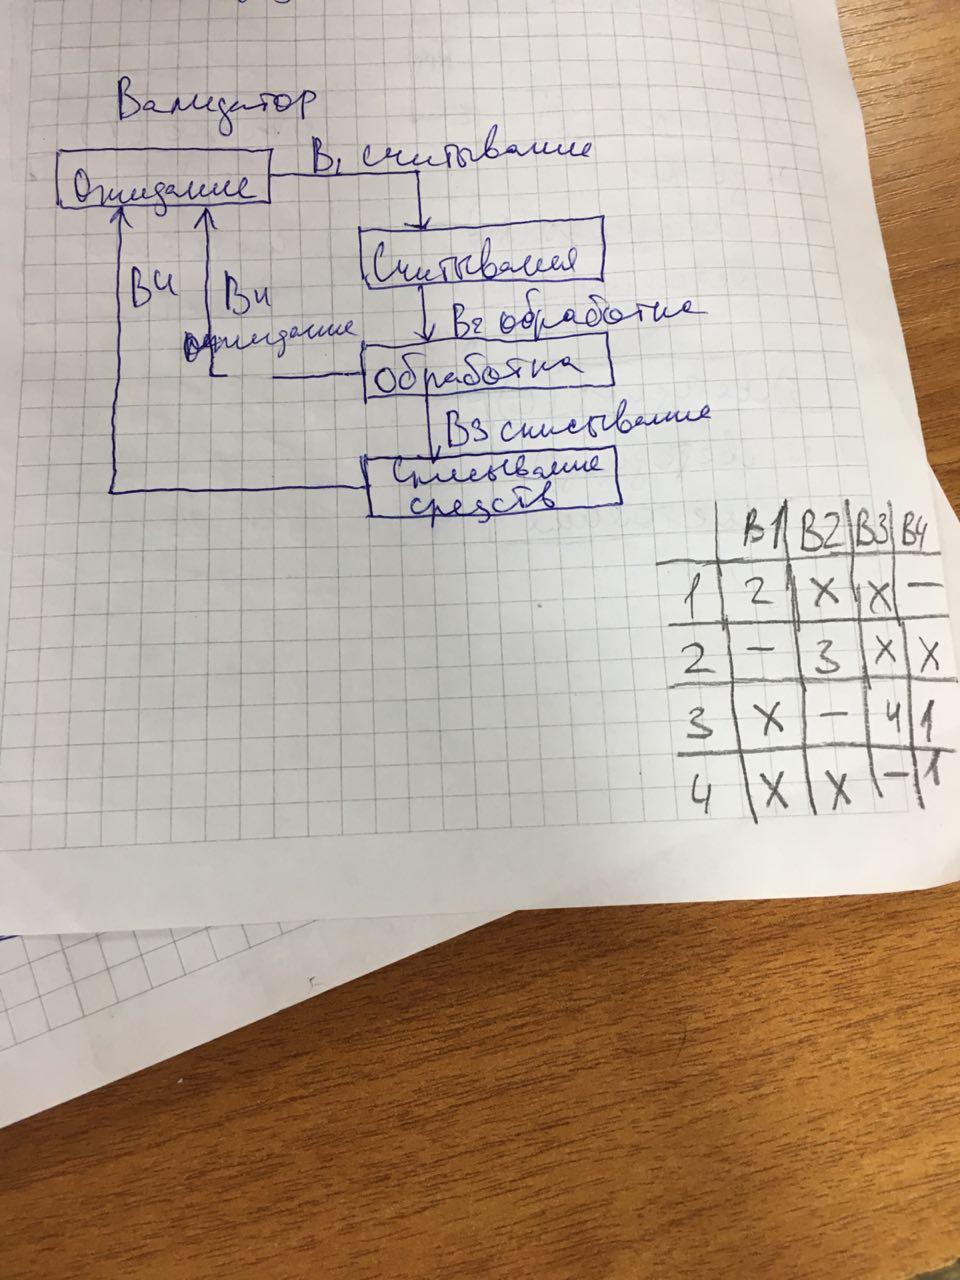 Валидатор
B1 считывание
Ожидание
Считывания
В4
В4
ожидание
B2 обработка
Обработка
В3 списывание
Списывание
средств
B1 B2 B3 B4
1 2 X X —
2 — 3 X X
3 X — 4 1
4 X X — 1